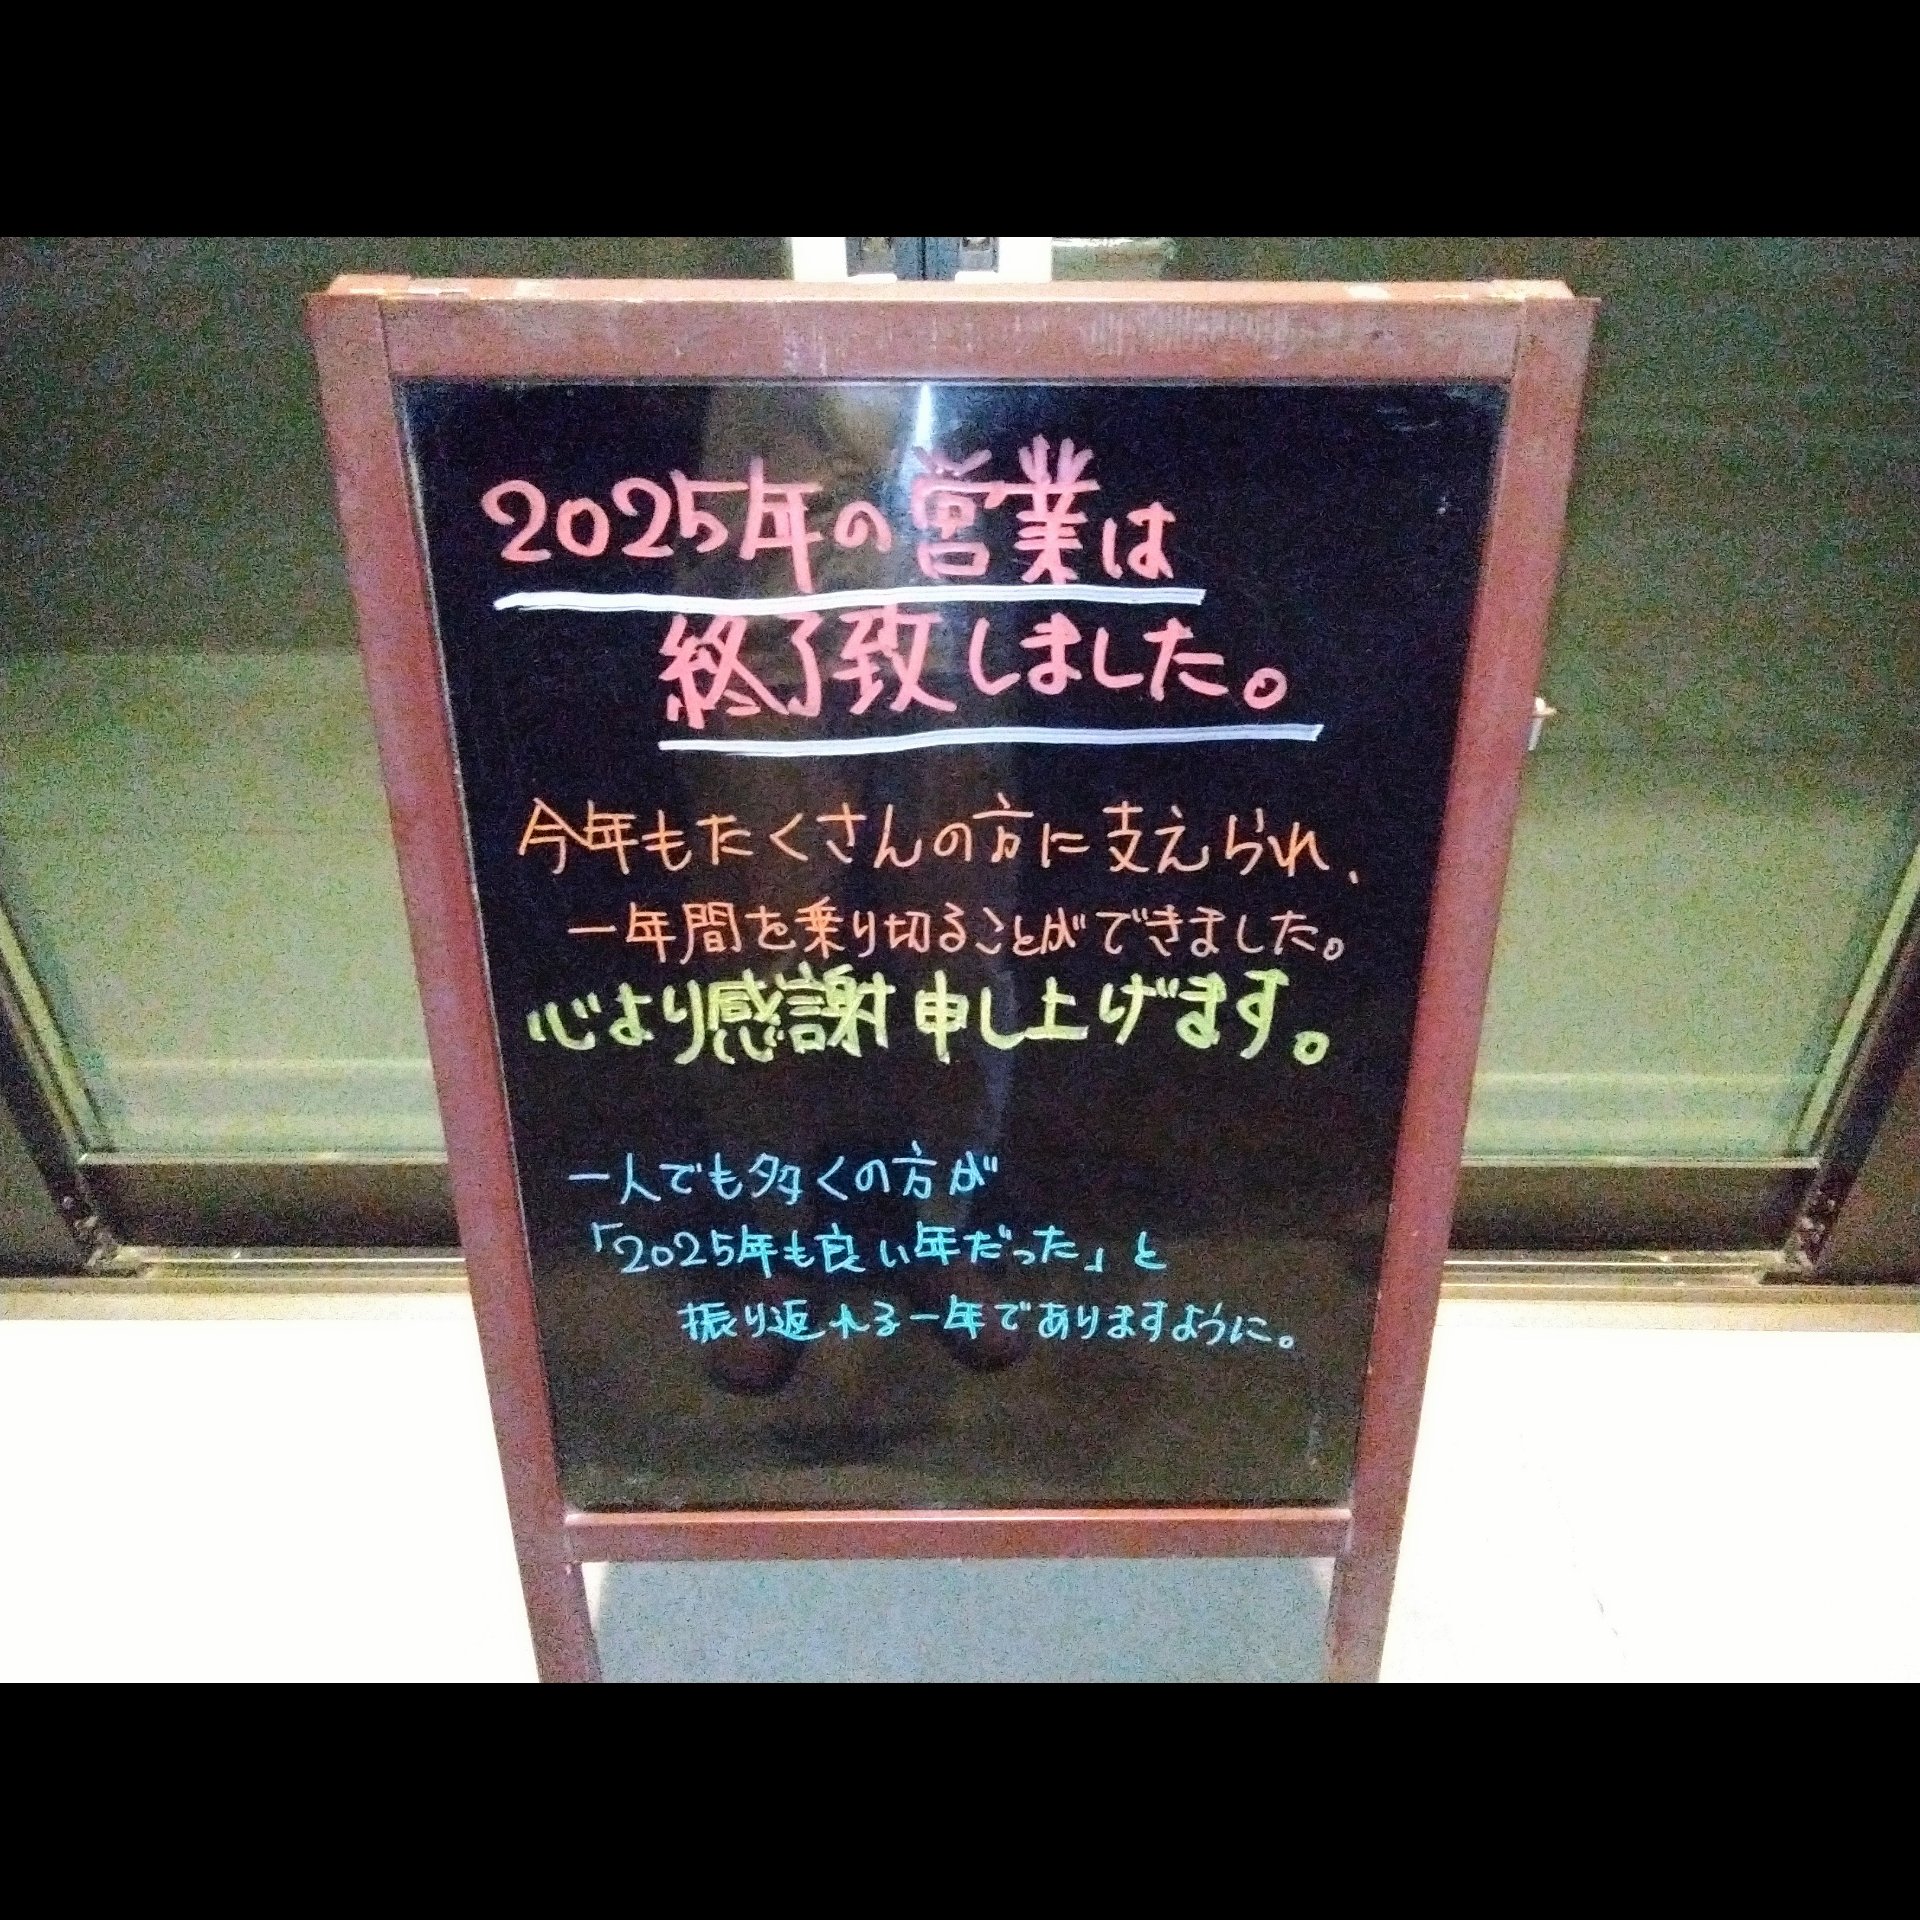 2025年の営業は
終了致しました。
今年もたくさんの方に支えられ、
一年間を乗り切ることができました。
心より感謝申し上げます。
一人でも多くの方が
「2025年も良い年だった」と
振り返れる一年でありますように。